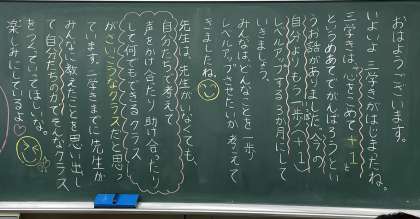 おはようございます。
いよいよ三学きがはじまったね。
三学きは、心をこめて＋1
というめあてでがんばろうとい
うお話がありました。今の
自分よりもう一歩(＋1)
レベルアップする3か月にして
いきましょう。
みんなはどんなことを一歩
レベルアップさせたいか考えて
きましたね。
先生は、先生がいなくても、
自分たちで考えて
声をかけ合たり助け合ったり
して何でもできるクラス
がさいこうなクラスだと思っ
ています。二学きまでに先生が
みんなに教えたことを思い出し
て自分たちの力でそんなクラス
をつくっていってほしいな。
楽しみにしているよ♡